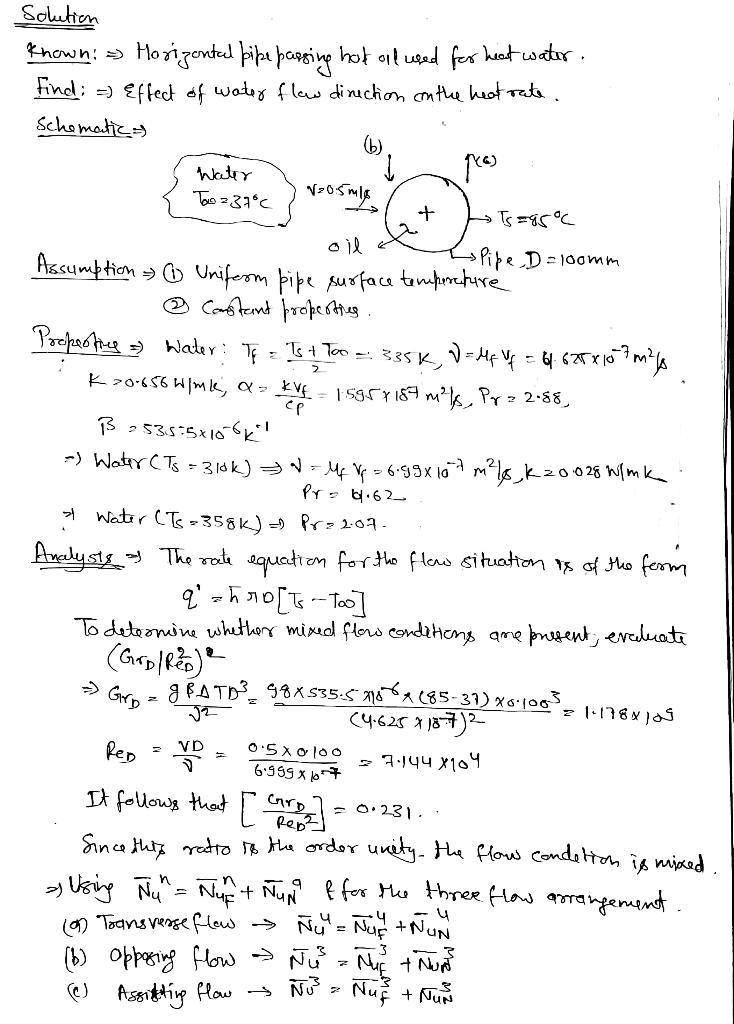 Solution
Known: ⇒ Horizontal pipe passing hot oil used for heat water.
Find: ⇒ Effect of water flow direction on the heat rate.
Schematic ⇒
(b)
(c)
Water
T∞ = 37°C
V=0.5m/s
+
Ts = 85°C
oil
Pipe, D = 100mm
Assumption ⇒ ① Uniform pipe surface temperature
② Constant properties.
Properties ⇒ Water: Tf = Ts + T∞ / 2 = 335K, ν = μf vf = 4.625 x 10^-7 m²/s
K = 0.656 W/mk, α = k vf / cp = 1.595 x 10^-7 m²/s, Pr = 2.88,
β = 535.5 x 10^-6 k^-1
⇒ Water (Ts = 310k) ⇒ ν = μf vf = 6.99 x 10^-7 m²/s, k = 0.028 W/mk
Pr = 4.62
⇒ Water (Ts = 358k) ⇒ Pr = 2.07.
Analysis ⇒ The rate equation for the flow situation is of the form
q' = h̄ π D [Ts - T∞]
To determine whether mixed flow conditions are present, evaluate
(GrD/ReD²)
⇒ GrD = gβΔTD³ / ν² = 98 x 535.5 x 10^-6 x (85-37) x 0.100³ / (4.625 x 10^-7)² = 1.178 x 10^9
ReD = VD / ν = 0.5 x 0.100 / 6.999 x 10^-7 = 7.144 x 10^4
It follows that [GrD / ReD²] = 0.231.
Since this ratio is the order unity. the flow condition is mixed.
⇒ Using N̄u^n = N̄uF^n + N̄uN^n & for the three flow arrangement.
(a) Transverse flow → N̄u^4 = N̄uF^4 + N̄uN^4
(b) Opposing flow → N̄u^3 = N̄uF^3 + N̄uN^3
(c) Assisting flow → N̄u^3 = N̄uF^3 + N̄uN^3